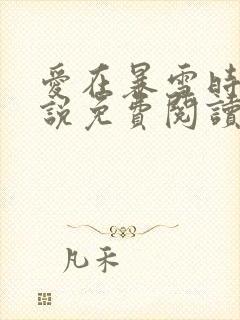 愛在暴雪時
說免費閱讀
凡禾